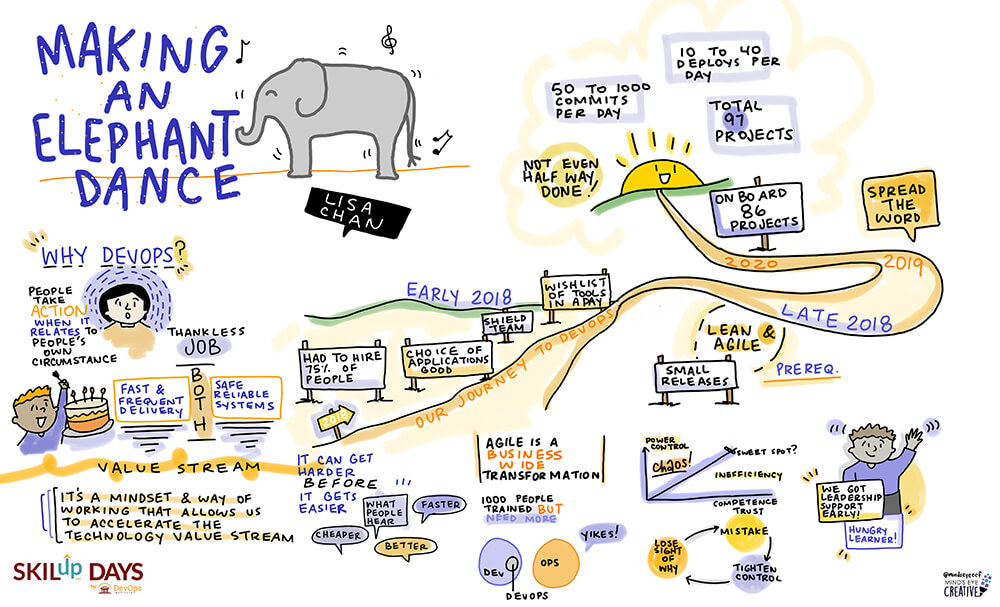 MAKING
AN
ELEPHANT
DANCE
LISA
CHAN
WHY DEVOPS?
PEOPLE
TAKE
ACTION
WHEN IT
RELATES TO
PEOPLE'S
OWN
CIRCUMSTANCE
THANKLESS
JOB
FAST &
FREQUENT
DELIVERY
BOTH
SAFE
RELIABLE
SYSTEMS
VALUE STREAM
IT'S A MINDSET & WAY OF
WORKING THAT ALLOWS US
TO ACCELERATE THE
TECHNOLOGY VALUE STREAM
SKILup DAYS
by DevOps
INSTITUTE
50 TO 1000
COMMITS
PER DAY
10 TO 40
DEPLOYS PER
DAY
TOTAL
97
PROJECTS
NOT EVEN
HALF WAY
DONE!
ON BOARD
86
PROJECTS
SPREAD
THE
WORD
2020
2019
EARLY 2018
LATE 2018
WISHLIST
OF TOOLS
IN A PAY
SHIELD
TEAM
HAD TO HIRE
75% OF
PEOPLE
CHOICE OF
APPLICATIONS
GOOD
2018
OUR JOURNEY TO DEVOPS
LEAN &
AGILE
PREREQ.
SMALL
RELEASES
IT CAN GET
HARDER
BEFORE
IT GETS
EASIER
WHAT
PEOPLE
HEAR
FASTER
CHEAPER
BETTER
AGILE IS A
BUSINESS
WIDE
TRANSFORMATION
1000 PEOPLE
TRAINED BUT
NEED MORE
YIKES!
DEV
OPS
DEVOPS
POWER
CONTROL
CHAOS!
SWEET SPOT?
INEFFICIENCY
COMPETENCE
TRUST
MISTAKE
TIGHTEN
CONTROL
LOSE
SIGHT
OF
WHY
WE GOT
LEADERSHIP
SUPPORT
EARLY!
HUNGRY
LEARNER!
@mindseyeccf
MIND'S EYE
CREATIVE